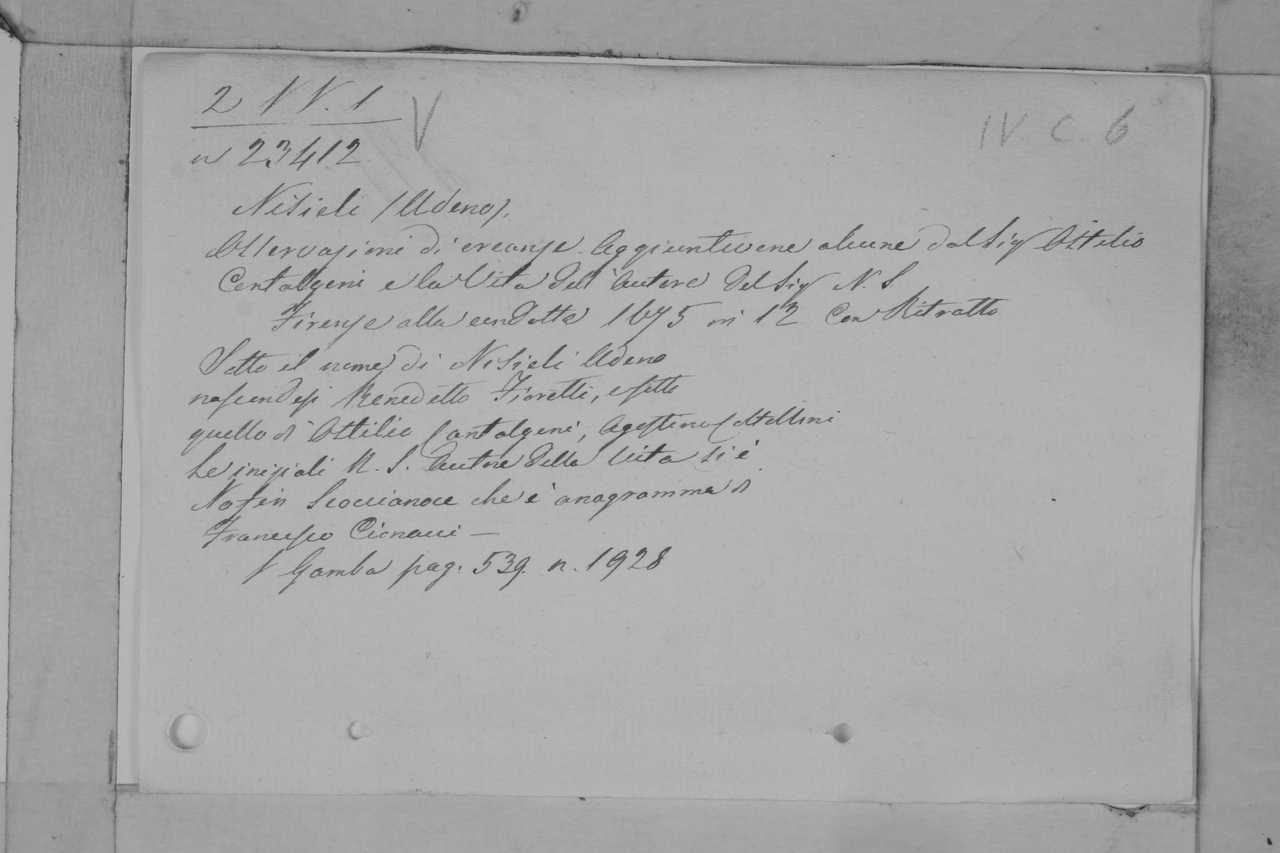 2 VV. 1
V
IV C. 6
n 23412
Nisieli (Udeno).
Osservazioni di creanze. Aggiuntevene alcune dal Sig Ostilio
Contalgeni e la Vita dell'Autore del Sig N. S
Firenze alla condotta 1675 in 12 Con Ritratto
Sotto il nome di Nisieli Udeno
nascondesi Benedetto Fioretti, e sotto
quello di Ostilio Contalgeni, Agostino Coltellini
Le iniziali N. S. Autore della Vita si è
Nosfin Scoccianoce che è anagramma di
Francesco Cionacci —
V Gamba pag. 539. n. 1928